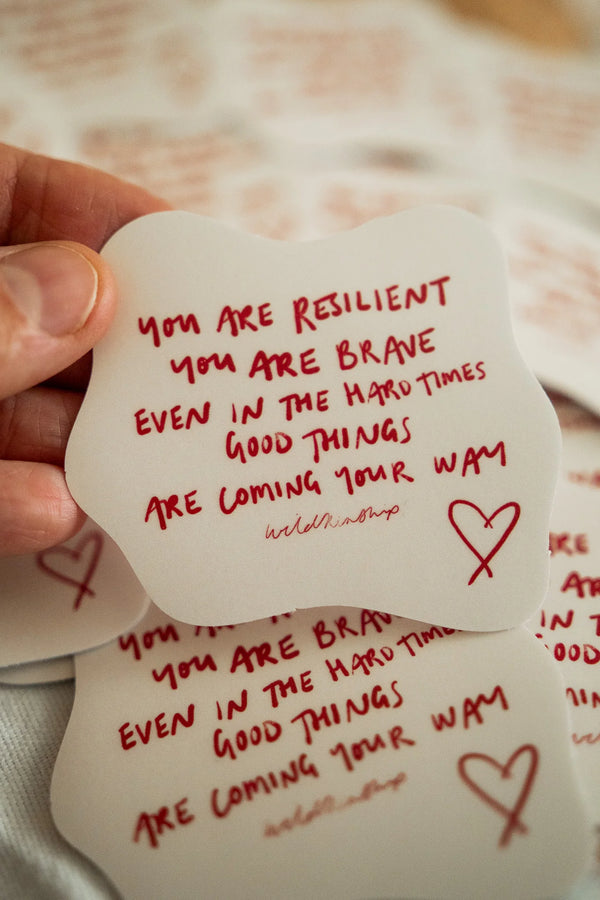 you ARE RESILIENT
you ARE BRAVE
EVEN IN THE HARD TIMES
GOOD THINGS
ARE COMING YOUR WAY
wildkinship
you ARE BRAVE
EVEN IN THE HARD TIMES
GOOD THINGS
ARE COMING YOUR WAY
wildkinship